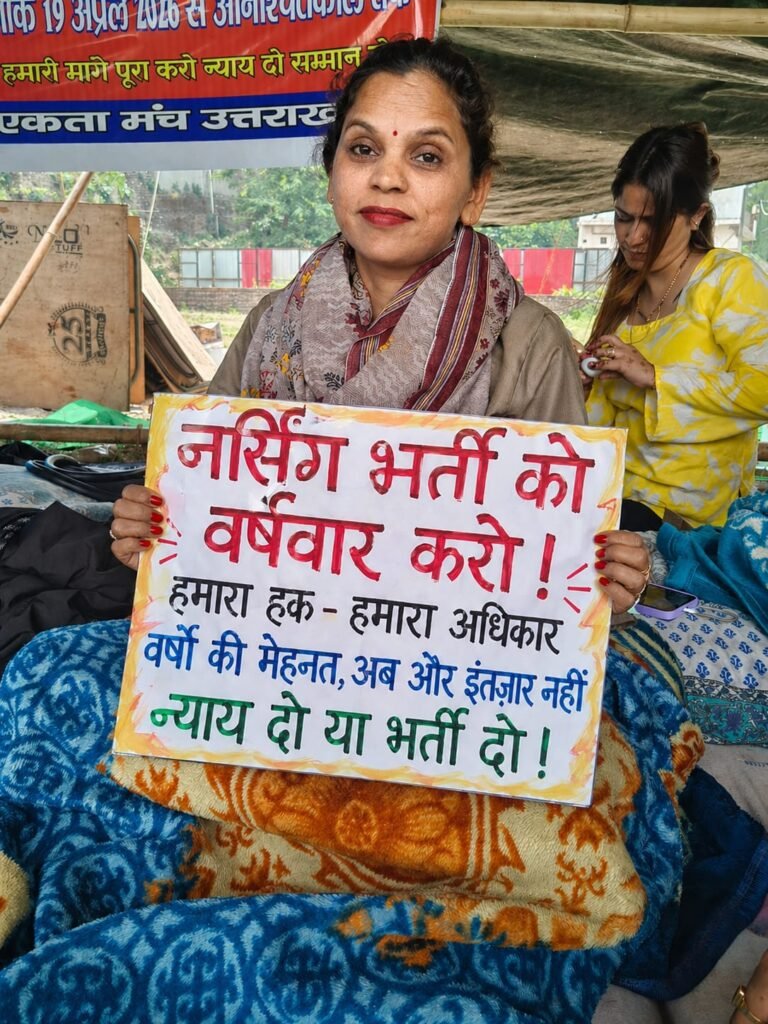 19 अप्रैल 2026 से अनिश्चितकाल तक
हमारी मांगे पूरा करो न्याय दो सम्मान
एकता मंच उत्तराख
25
नर्सिंग भर्ती को
वर्षवार करो!
हमारा हक - हमारा अधिकार
वर्षो की मेहनत, अब और इंतज़ार नहीं
न्याय दो या भर्ती दो!